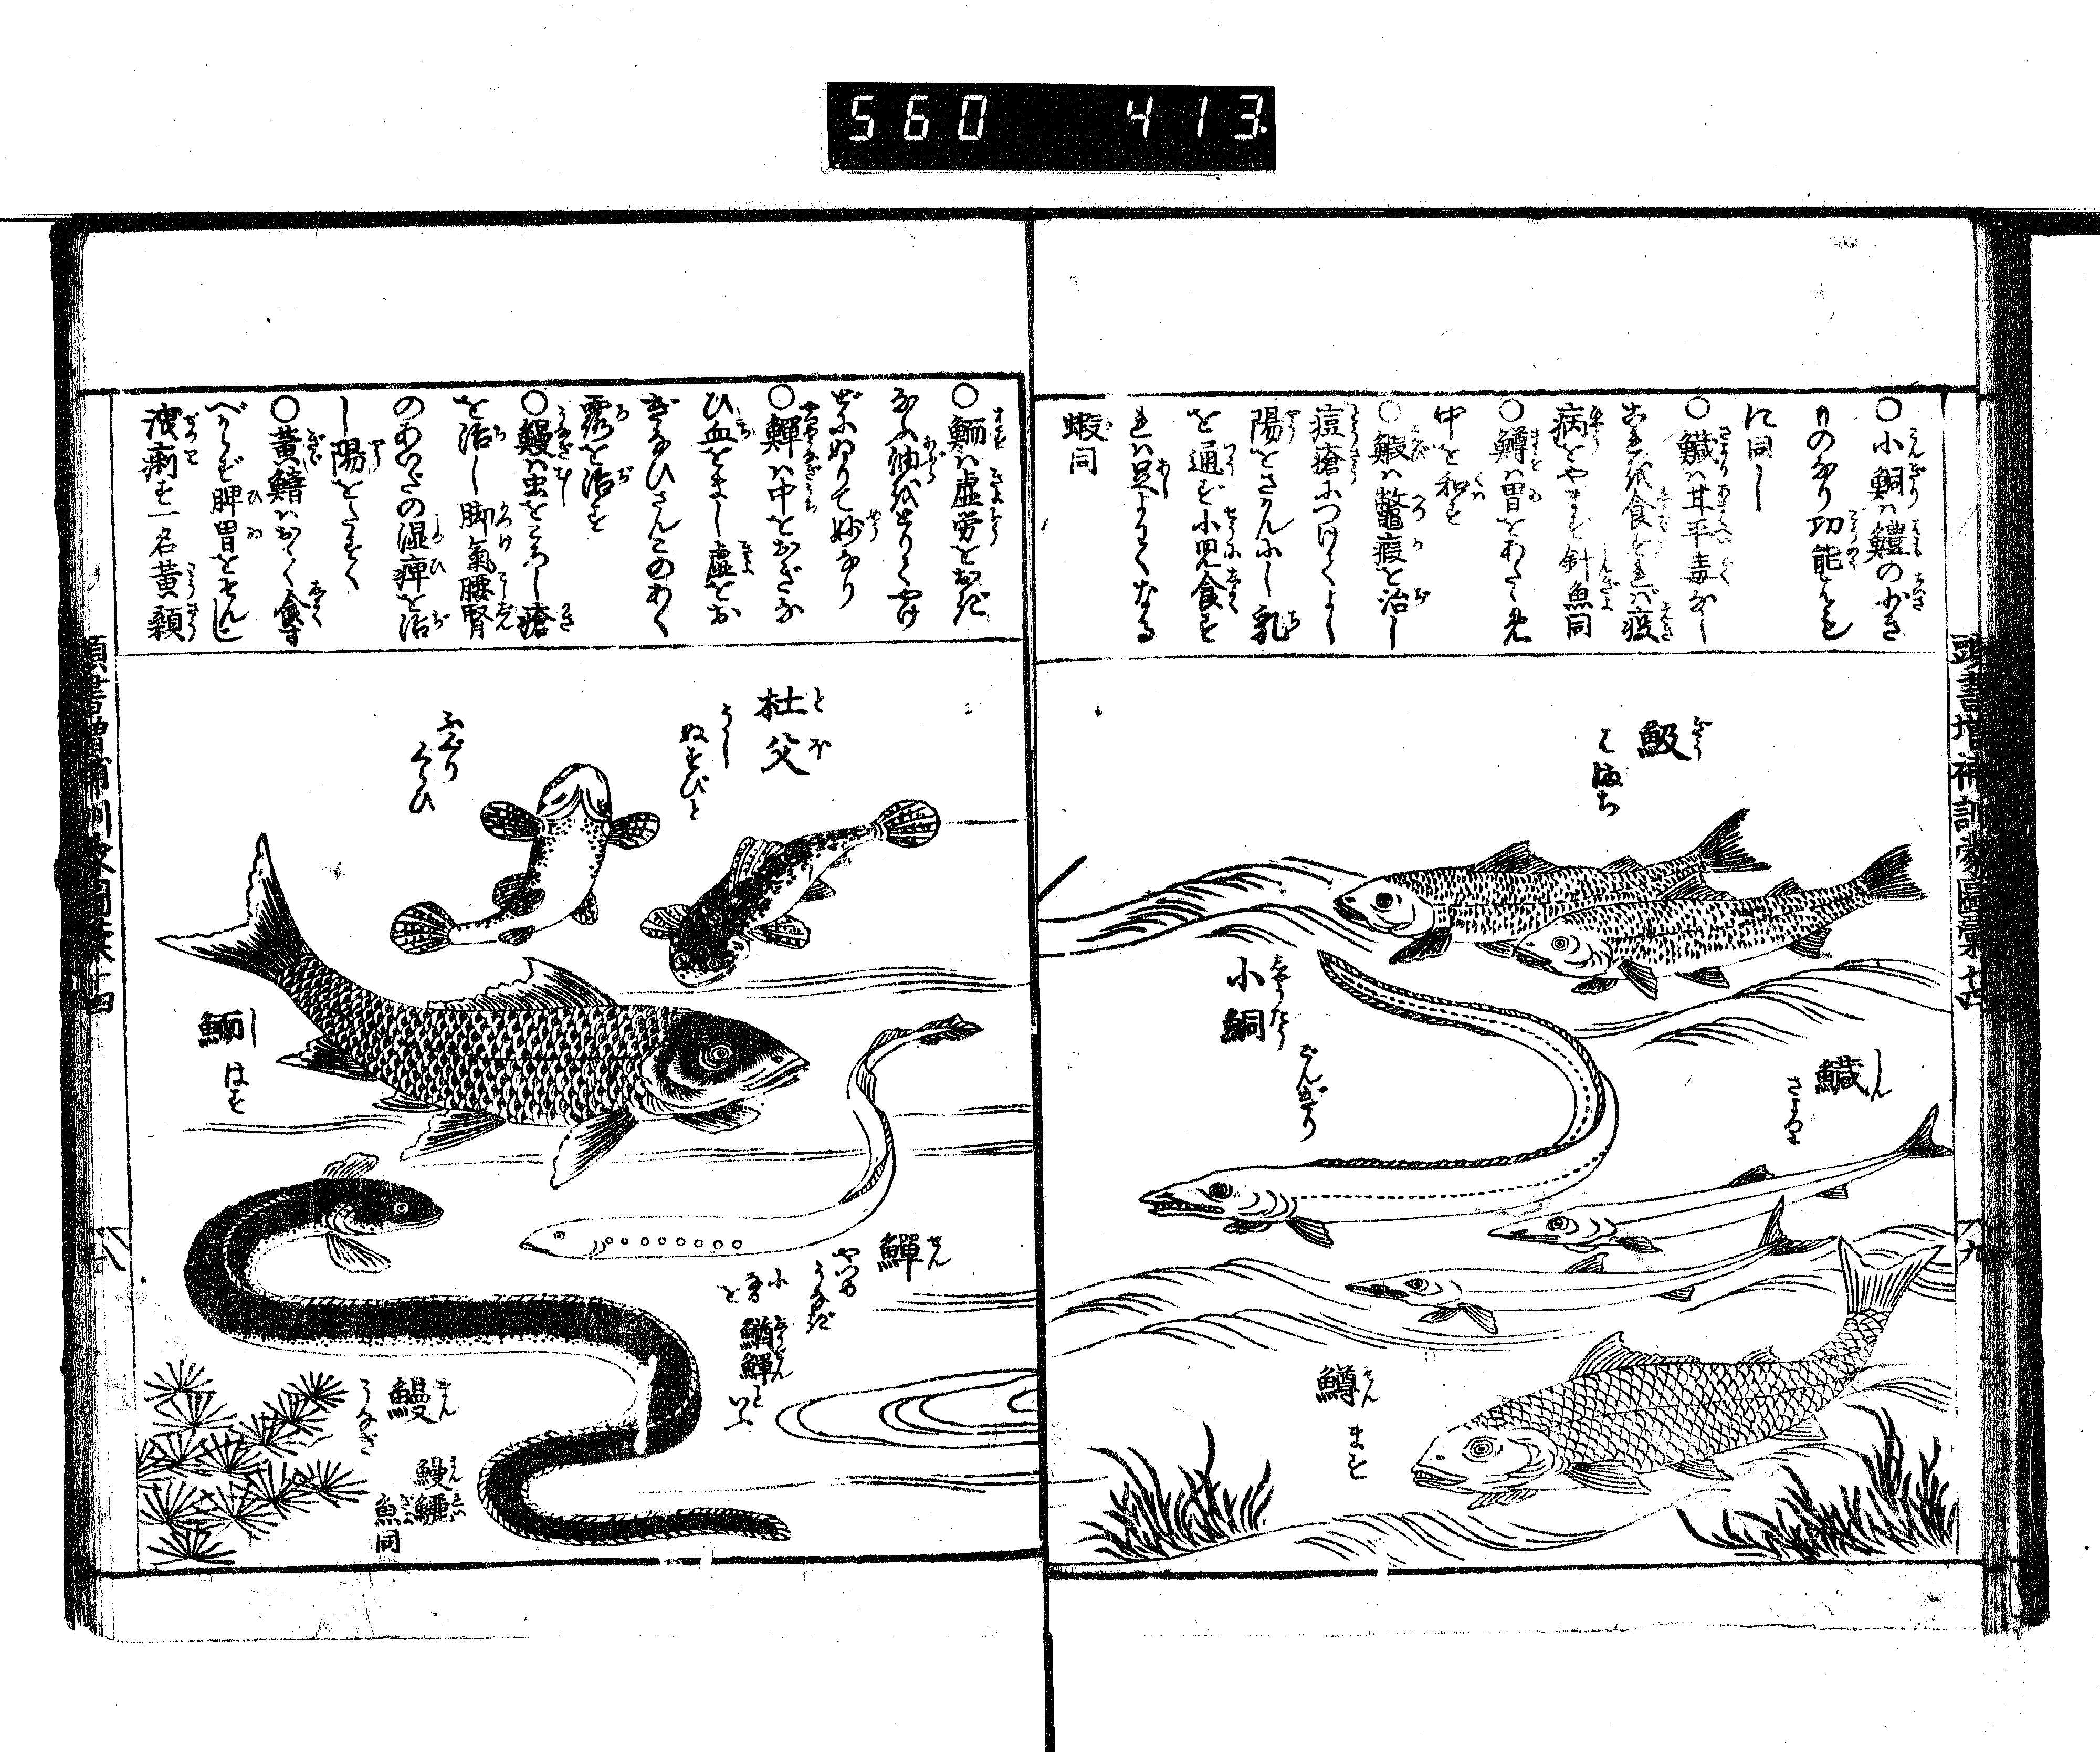 560 413.
○小鮦ハ鱧の小き
ものなり功能も
に同し
○鱵ハ甘平毒なし
これを食すれバ疫
病をやまず針魚同
○鱒ハ胃をあたゝめ
中を和す
○鰕ハ鼈瘕を治し
痘瘡につけてよし
陽をさかんにし乳
を通ず小児食す
れハ足よハくなる
蝦同
魥
小鮦
ごんぎり
鱵
さより
鱒
ます
頭書増補訓蒙圖彙十四
九
○鮞ハ虚労をおぎ
なふ油をとりてやけ
どにぬりて妙なり
○鱓ハ中をおぎな
ひ血をまし虚をお
ぎなひさんこのあく
露を治す
○鰻ハ虫をころし瘡
を治し脚氣腰腎
のあいだの湿痺を治
し陽をたすく
○黄鱨ハおゝく食す
べからず脾胃をそんじ
洩痢す一名黄顙
杜父
とふ
うし
ぬすびと
ふぐり
くらひ
鮞
はす
鱓
やつめ
うなぎ
小
鰌鱓
といふ
鰻
うなぎ
鰻鱺
魚同
頭書増補訓蒙圖彙十四
八